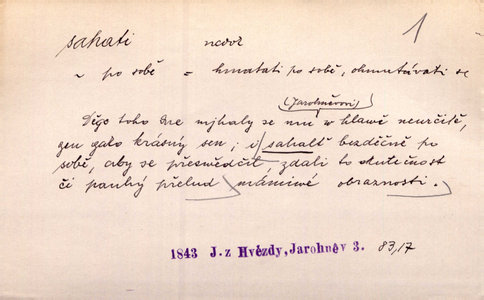 1
sahati nedok
~ po sobě = hmatati po sobě, ohmatávati se
(Jaroněvovi)
Děgo toho se mihaly se mu w hlawě neurčitě,
gen gako krásný sen; i sahalť bezděčně po
sobě, aby se přeswědčil, zdali to skutečnost
či pauhý přelud mámiwé obraznosti.
1843 J. z Hvězdy, Jarohněv 3. 83,17